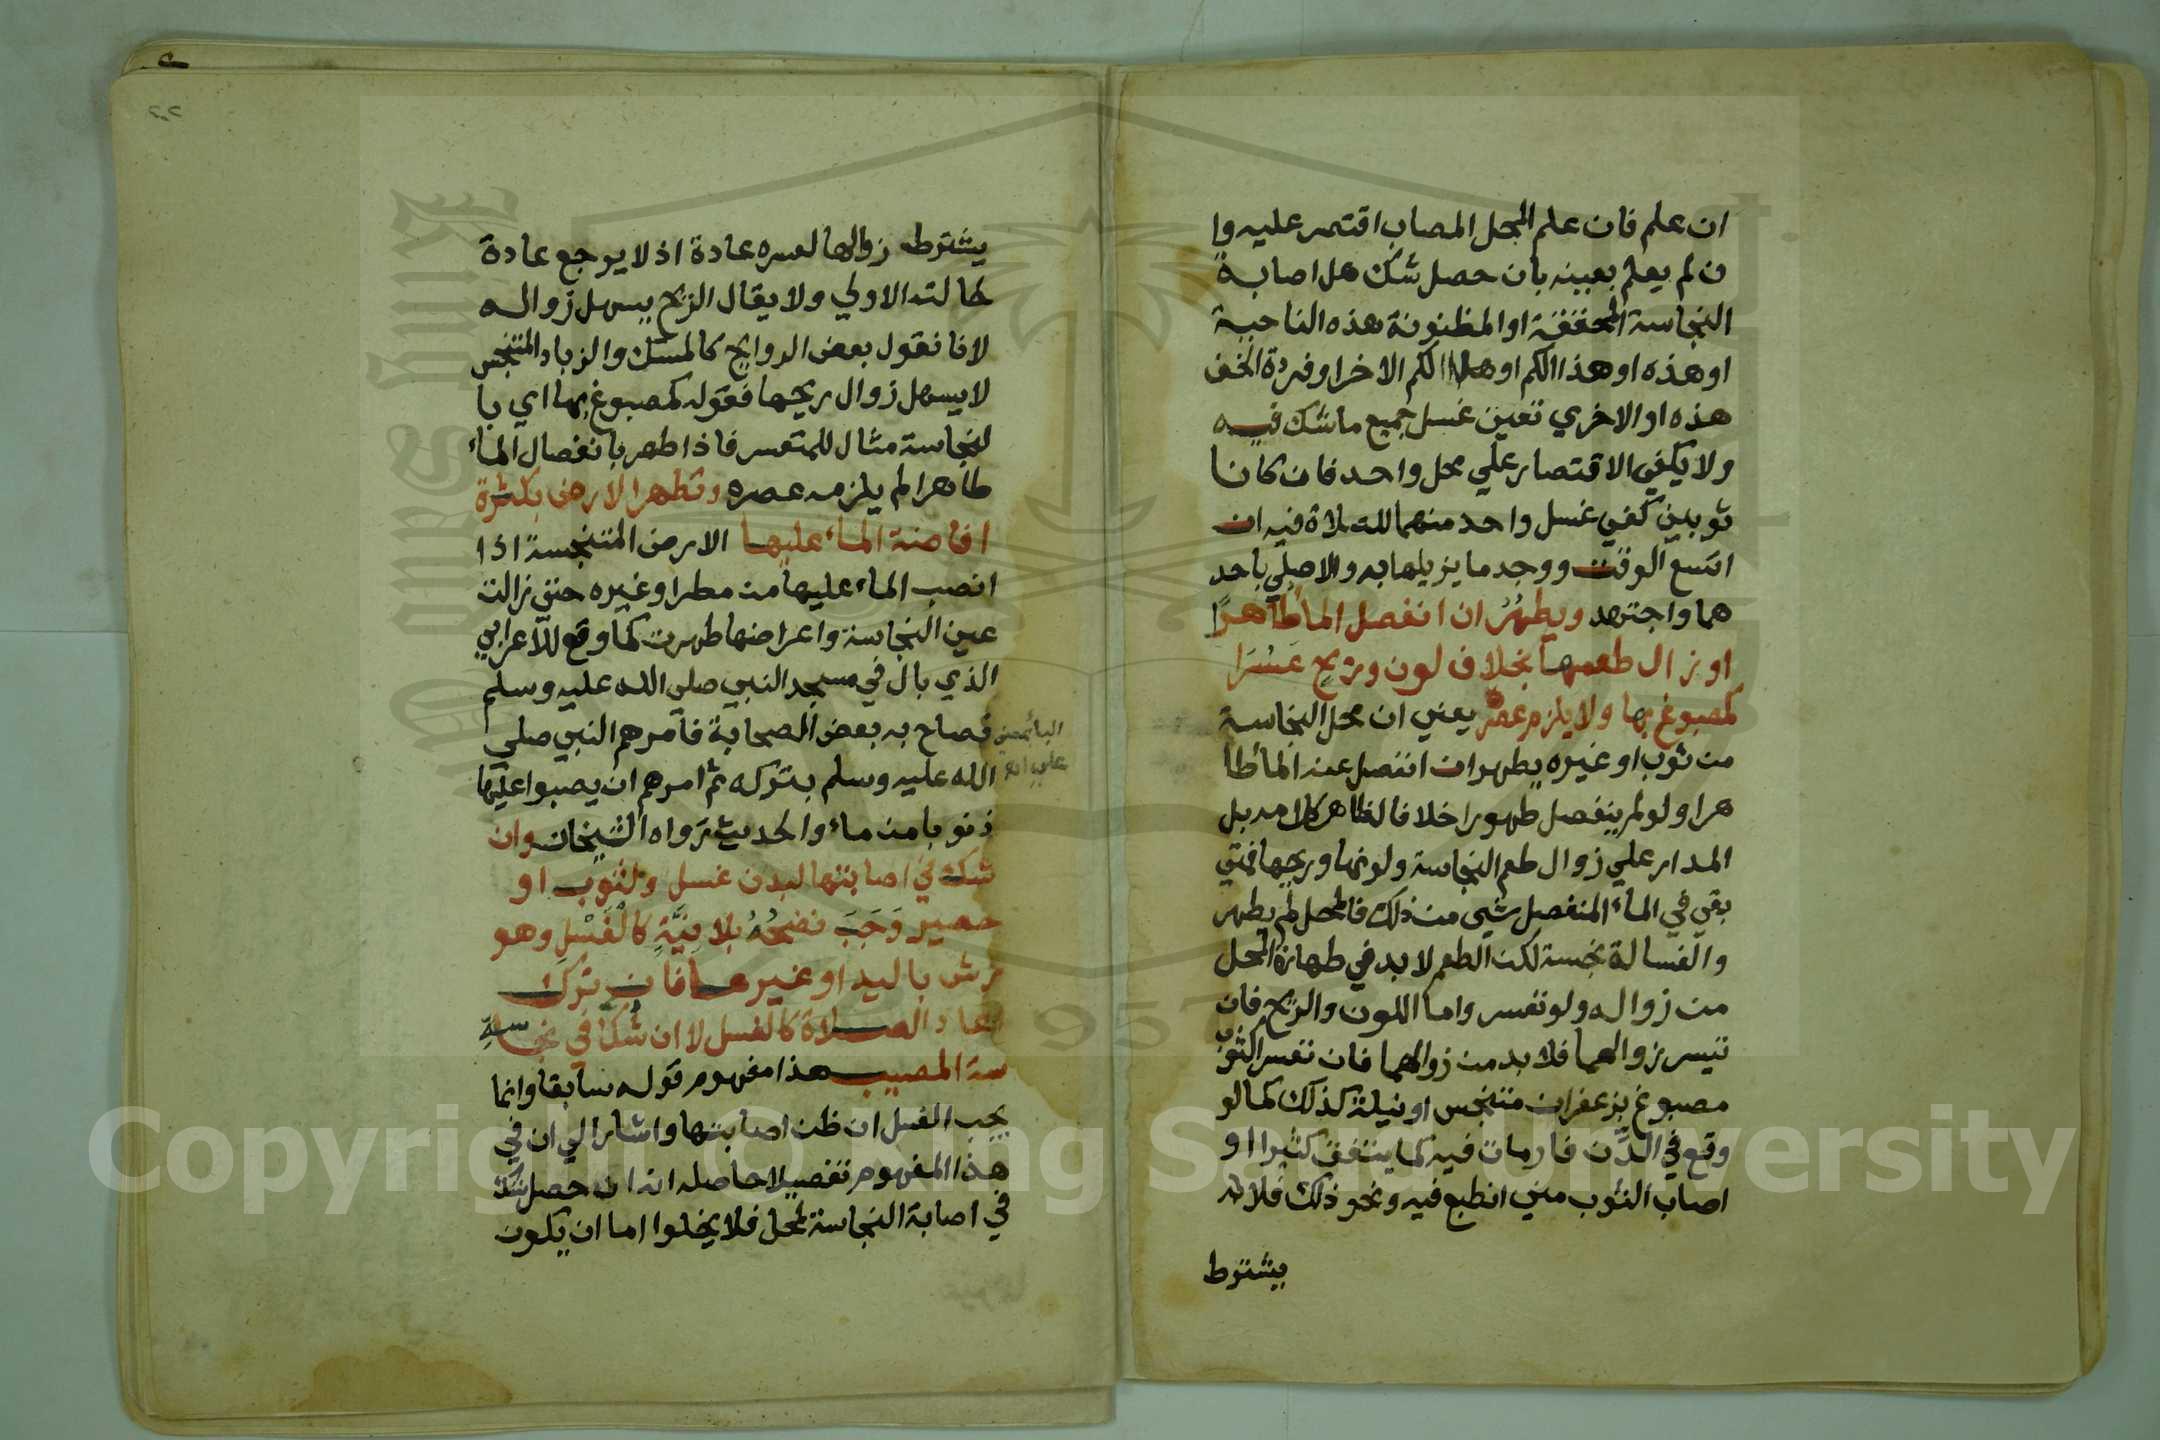 ان علم فان علم المحل المصاب اقتصر عليه وا
ن لم يعلم بعينه بان حصل شك هل اصابة
النجاسة المحققة او المظنونة هذه الناحية
او هذه او هذا الكم او هذا الكم الاخر او فردة الخف
هذه او الاخري تعين غسل جميع ما شك فيه
ولا يكفي الاقتصار علي محل واحد فان كانا
ثوبين كفي غسل واحد منهما للصلاة فيه ان
اتسع الوقت ووجد ما يزيلها به والاصلي باحد
هما واجتهد ويطهُرُ ان انفصل الما طاهرًا
او زال طعمها بخلاف لون وريح عَسُرَا
كمصبوغ بها ولا يلزم عصره يعني ان محل النجاسة
من ثوب او غيره يطهر ان انفصل عنه الما طا
هرا ولو لم ينفصل طهورا خلافا لظاهر كلامه بل
المدار علي زوال طعم النجاسة ولونها وريحها فمتي
بقي في الماء المنفصل شي من ذلك فالمحل لم يطهر
والغسالة نجسة لكن الطعم لا بد في طهارة المحل
من زواله ولو تعسر واما اللون والريح فان
تيسر زوالهما فلا بد من زوالهما فان تعسر كثوب
مصبوغ بزعفران متنجس او نيلة كذلك كما لو
وقع في الدن فار مات فيه كما يتفق كثيرا او
اصاب الثوب مني انطبع فيه ونحو ذلك فلا
يشترط
يشترط زوالها لعسره عادة اذ لا يرجع عادة
لحالته الاولي ولا يقال الريح يسهل زواله
لانا نقول بعض الروايح كالمسك والزباد المتنجس
لا يسهل زوال ريحها فقوله كمصبوغ بها اي با
لنجاسة مثال للمتعسر فاذا طهر بانفصال الماء
طاهرا لم يلزمه عصره وتطهر الارض بكثرة
افاضة الماء عليها الارض المتنجسة اذا
انصب الماء عليها من مطر او غيره حتي زالت
عين النجاسة واعراضها طهرت كما وقع للاعرابي
الذي بال في مسجد النبي صلي الله عليه وسلم
فصاح به بعض الصحابة فامرهم النبي صلي
الله عليه وسلم بتركه ثم امرهم ان يصبوا عليها
ذنوبا من ماء والحديث رواه الشيخان وان
شك في اصابتها لبدن غسل ولثوب او
حصير وَجَبَ نضحُهُ بلا نِيَّةٍ كالغَسْلِ وهو
رش باليد او غيرها فان ترك
اعاد الصلاة كالغسل لا ان شك في نجا
سة المصيب هذا مفهوم قوله سابقا وانما
يجب الغسل ان ظن اصابتها واشار الي ان في
هذا المفهوم تفصيلا حاصله انه ان حصل شك
في اصابة النجاسة لمحل فلا يخلوا اما ان يكون
Copyright © King Saud University
King Saud University
1957